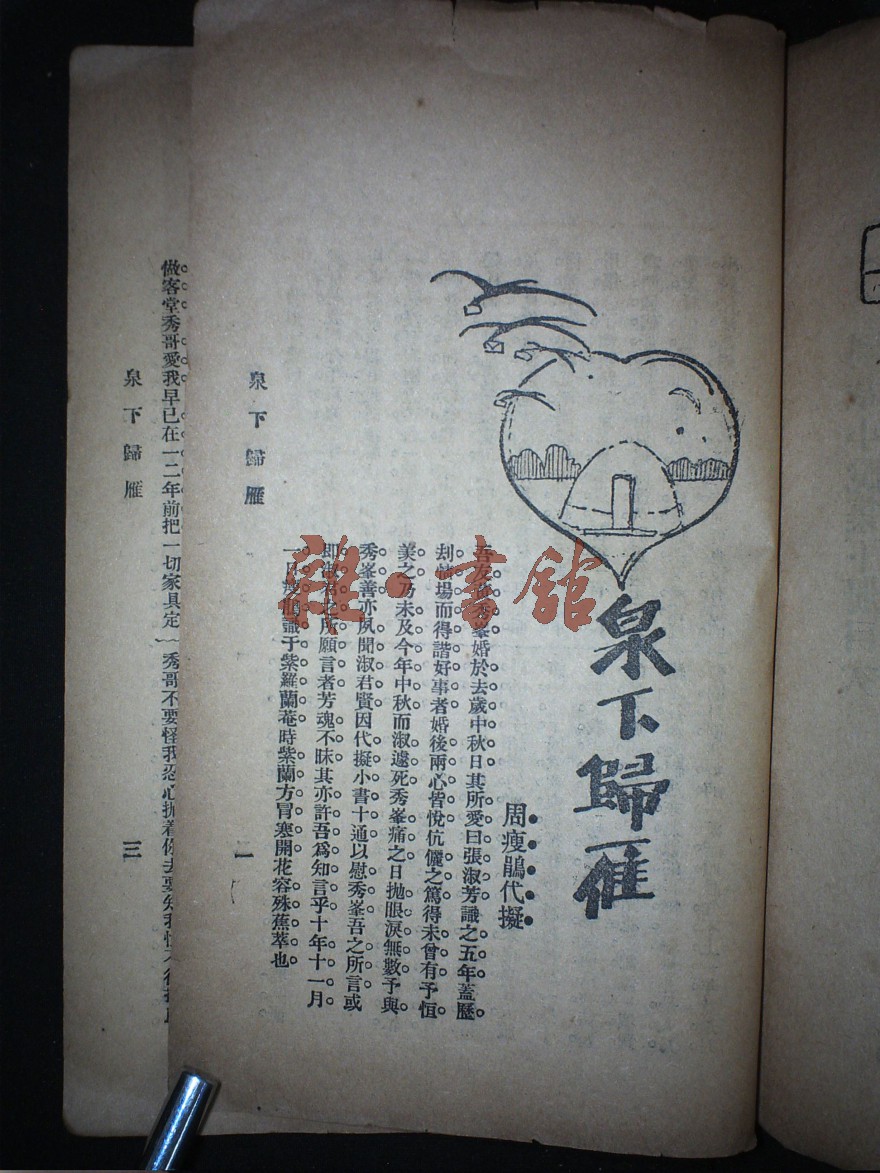 泉下歸雁
周瘦鵑代擬
吾友黃秀峯婚於去歲中秋日其所愛曰張淑芳識之五年蓋歷
刦情場而得諧好事者婚後兩心皆悅伉儷之篤得未曾有予恒
羡之乃未及今年中秋而淑遽死秀峯痛之日拋眼淚無數予與
秀峯善亦夙聞淑君賢因代擬小書十通以慰秀峯吾之所言或
即淑君之所願言者芳魂不昧其亦許吾爲知言乎十年十一月
一日瘦鵑識于紫羅蘭菴時紫蘭方冒寒開花容殊蕉萃也
泉下歸雁
一
做客堂秀哥愛我早已在一二年前把一切家具定
秀哥不要怪我忍心拋着你去要知我
泉下歸雁
三
雜·書館